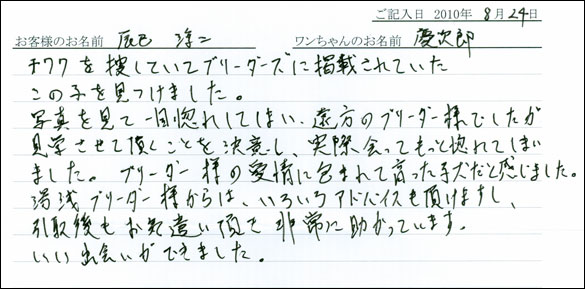 ご記入日 2010年 8月24日
お客様のお名前 辰巳 淳二 ワンちゃんのお名前 慶次郎
チワワを捜していてブリーダーズに掲載されていた
この子を見つけました。
写真を見て一目惚れしてしまい、遠方のブリーダー様でしたが
見学させて頂くことを決意し、実際会ってもっと惚れてしまい
ました。ブリーダー様の愛情に包まれて育った子犬だと感じました。
湯浅ブリーダー様からは、いろいろアドバイスも頂けますし、
引取後もお気遣い頂き非常に助かっています。
いい出会いができました。